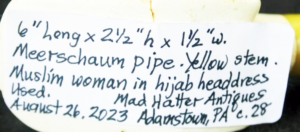 6" Long x 2½" h x 1½" w.
Meerschaum pipe. Yellow stem.
Muslim woman in hijab headdress
Used. Mad Hatter Antiques
August 26. 2023 Adamstown, PA c.28